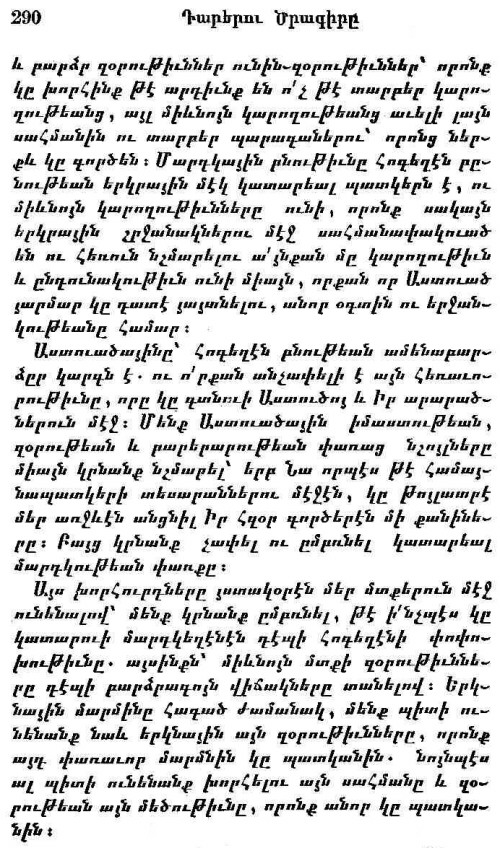 290 Դարերու Ծրագիրը
և բարձր զօրութիւններ ունին-զօրութիւններ՝ որոնք
կը խորհինք թէ արդիւնք են ո՛չ թէ տարբեր կարո-
ղութեանց, այլ միևնոյն կարողութեանց աւելի լայն
սահմանին ու տարբեր պարագաներու՝ որոնց ներ-
քև կը գործեն։ Մարդկային բնութիւնը Հոգեղէն բը-
նութեան երկրային մէկ կատարեալ պատկերն է, ու
միևնոյն կարողութիւնները ունի, որոնք սակայն
երկրային շրջանակներու մէջ սահմանափակուած
են ու հեռուն նշմարելու ա՛յնքան մը կարողութիւն
և ընդունակութիւն ունի միայն, որքան որ Աստուած
յարմար կը դատէ յայտնելու, անոր օգտին ու երջան-
կութեանը համար։
Աստուածայինը՝ հոգեղէն բնութեան ամենաբար-
ձըր կարգն է. ու ո՛րքան անչափելի է այն հեռաւո-
րութիւնը, որը կը գտնուի Աստուծոյ և Իր արարած-
ներուն մէջ։ Մենք Աստուածային իմաստութեան,
զօրութեան և բարերարութեան փառաց նշոյլները
միայն կրնանք նշմարել՝ երբ Նա որպէս թէ համայ-
նապատկերի տեսարաններու մէջէն, կը թոյլատրէ
մեր առջևէն անցնիլ Իր հզօր գործերէն մի քանինե-
րը։ Բայց կրնանք չափել ու ըմբռնել կատարեալ
մարդկութեան փառքը։
Այս խորհուրդները յստակօրէն մեր մտքերուն մէջ
ունենալով՝ մենք կրնանք ըմբռնել, թէ ի՛նչպէս կը
կատարուի մարդկեղէնէն դէպի հոգեղէնի փոփո-
խութիւնը. այսինքն՝ միևնոյն մտքի զօրութիւննե-
րը դէպի բարձրագոյն վիճակները տանելով։ Երկ-
նային մարմինը հագած ժամանակ, մենք պիտի ու-
նենանք նաև երկնային այն զօրութիւնները, որոնք
այդ փառաւոր մարմնին կը պատկանին. նոյնպէս
ալ պիտի ունենանք խորհելու այն սահմանը և զօ-
րութեան այն մեծութիւնը, որոնք անոր կը պատկա-
նին։